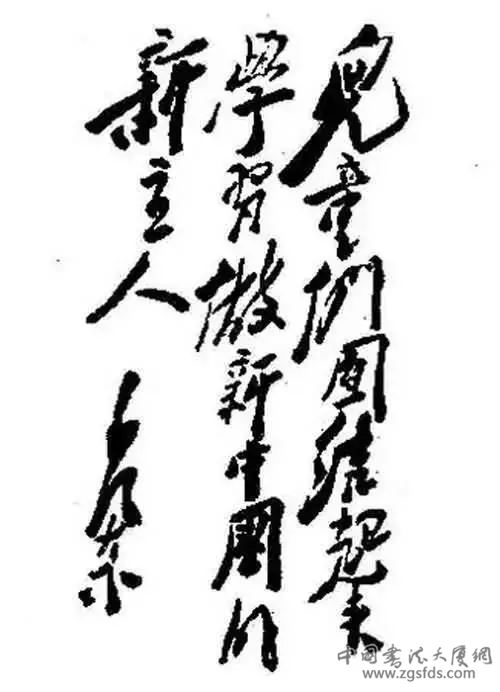 兒童們團結起來
學習做新中國的
新主人
毛澤東
中国書法大厦網
www.zgsfds.com